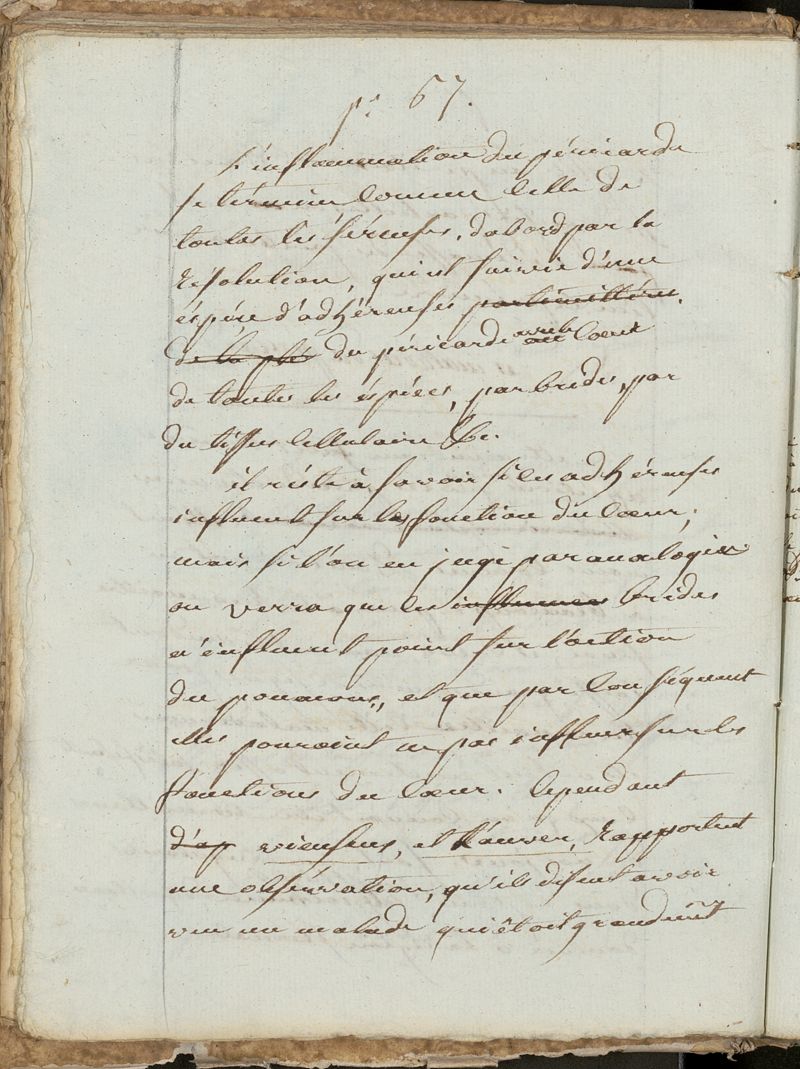 p.e 67.
l'inflammation du péricarde
se termine comme celle de
toutes les séreuses, dabord par la
résolution, qui est suivie d'une
éspéce d'adhérenses particuilléres,
de la plé du péricarde avec le coeur
de toutes les éspéces, par brides, par
du tissus cellulaire &c.
il réste à savoir si les adhérenses
influent sur les fonction du coeur;
mais si l'on en juge par analogie
on verra que les influences brides
n'influent point sur l'action
du poumons, et que par conséquent
elles pouroient ne pas influer sur les
fonctions du coeur. cependant
d'ap vieusens, et rapportent
une obsérvation, qu'ils disent avoir
vu un malade qui êtoit grandemt